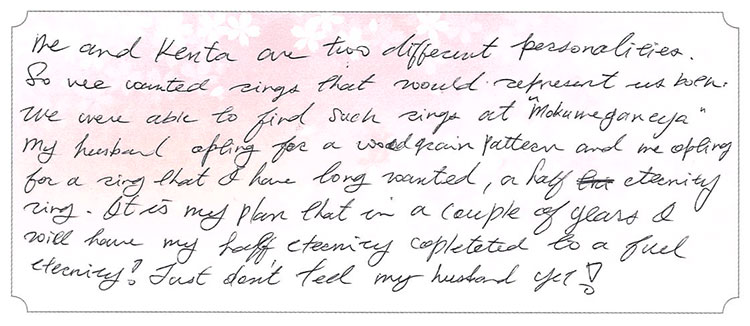 Me and Kenta are two different personalities.
So we wanted rings that would represent us both.
We were able to find such rings at "Mokumeganeya"
My husband opting for a woodgrain pattern and me opting
for a ring that I have long wanted, a half eternity
ring. It is my plan that in a couple of years I
will have my half eternity copleteted to a fuel
eternity! Just don't tell my husband yet!